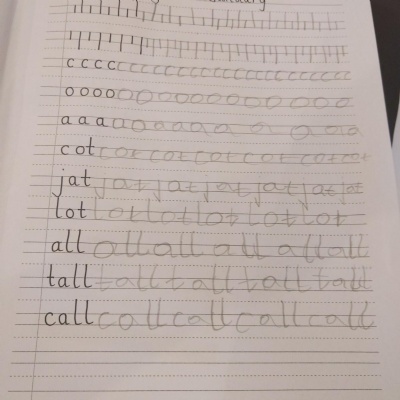 c c c c c c c c c c c c c c c c c c c c c c
o o o o o o o o o o o o o o o o
a a a a a a a a a a a a a
cot cot cot cot cot cot cot
jat jat jat jat jat jat jat
lot lot lot lot lot lot
all all all all all all
tall tall tall tall tall
call call call call call